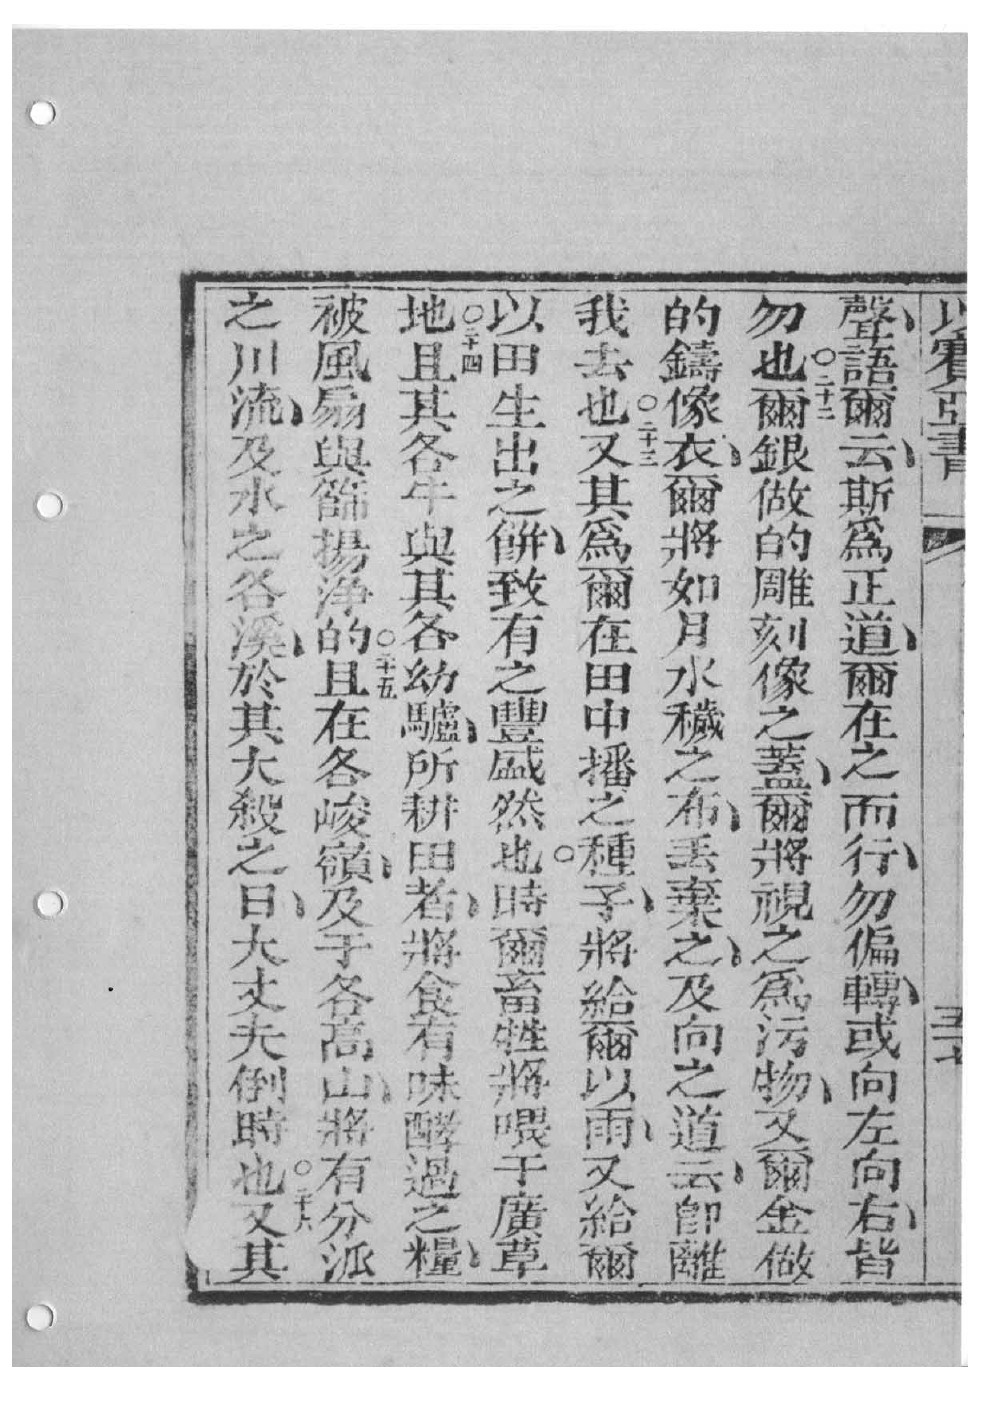 以賽亞書 五十七
聲語爾云斯為正道爾在之而行勿偏轉或向左向右皆
勿也○二十二爾銀做的雕刻像之蓋爾將視之為污物又爾金做
的鑄像衣爾將如月水穢之布丟棄之及向之道云卽離
我去也○二十三又其為爾在田中播之種子將給爾以雨又給爾
以田生出之餅致有之豐盛然也○時爾畜牲將喂于廣草
地○二十四且其各牛與其各幼驢所耕田者將食有味酵過之糧
被風扇與篩揚淨的○二十五且在各峻嶺及于各高山將有分派
之川流及水之各溪於其大殺之日大丈夫倒時也○二十六又其